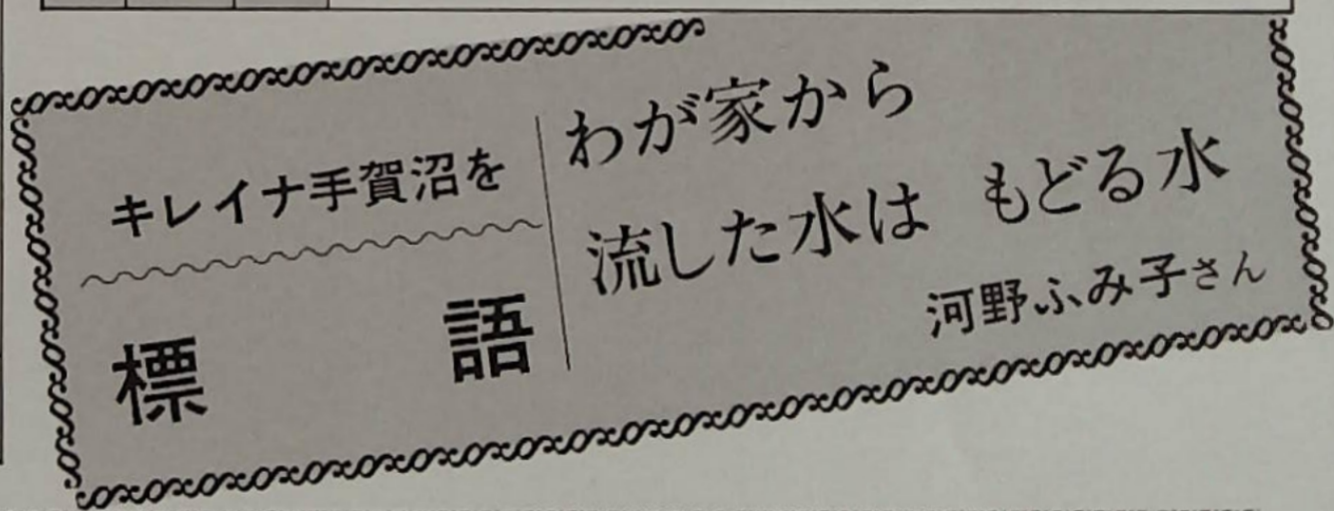 キレイナ手賀沼を
標語
わが家から
流した水は もどる水
河野ふみ子さん